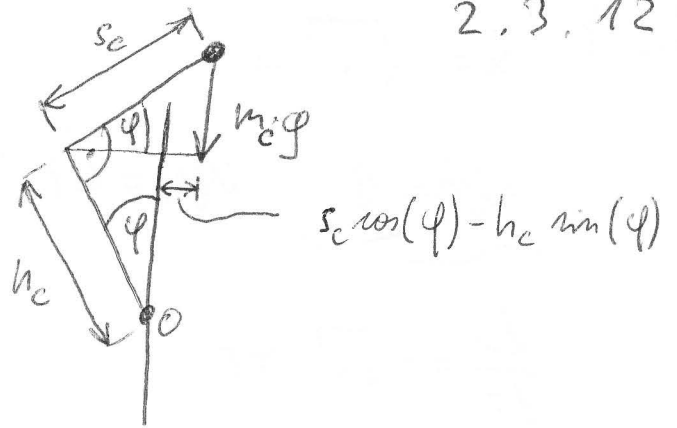 2.3.12
s_c
φ
m_c g
φ
s_c cos(φ) - h_c sin(φ)
h_c
O